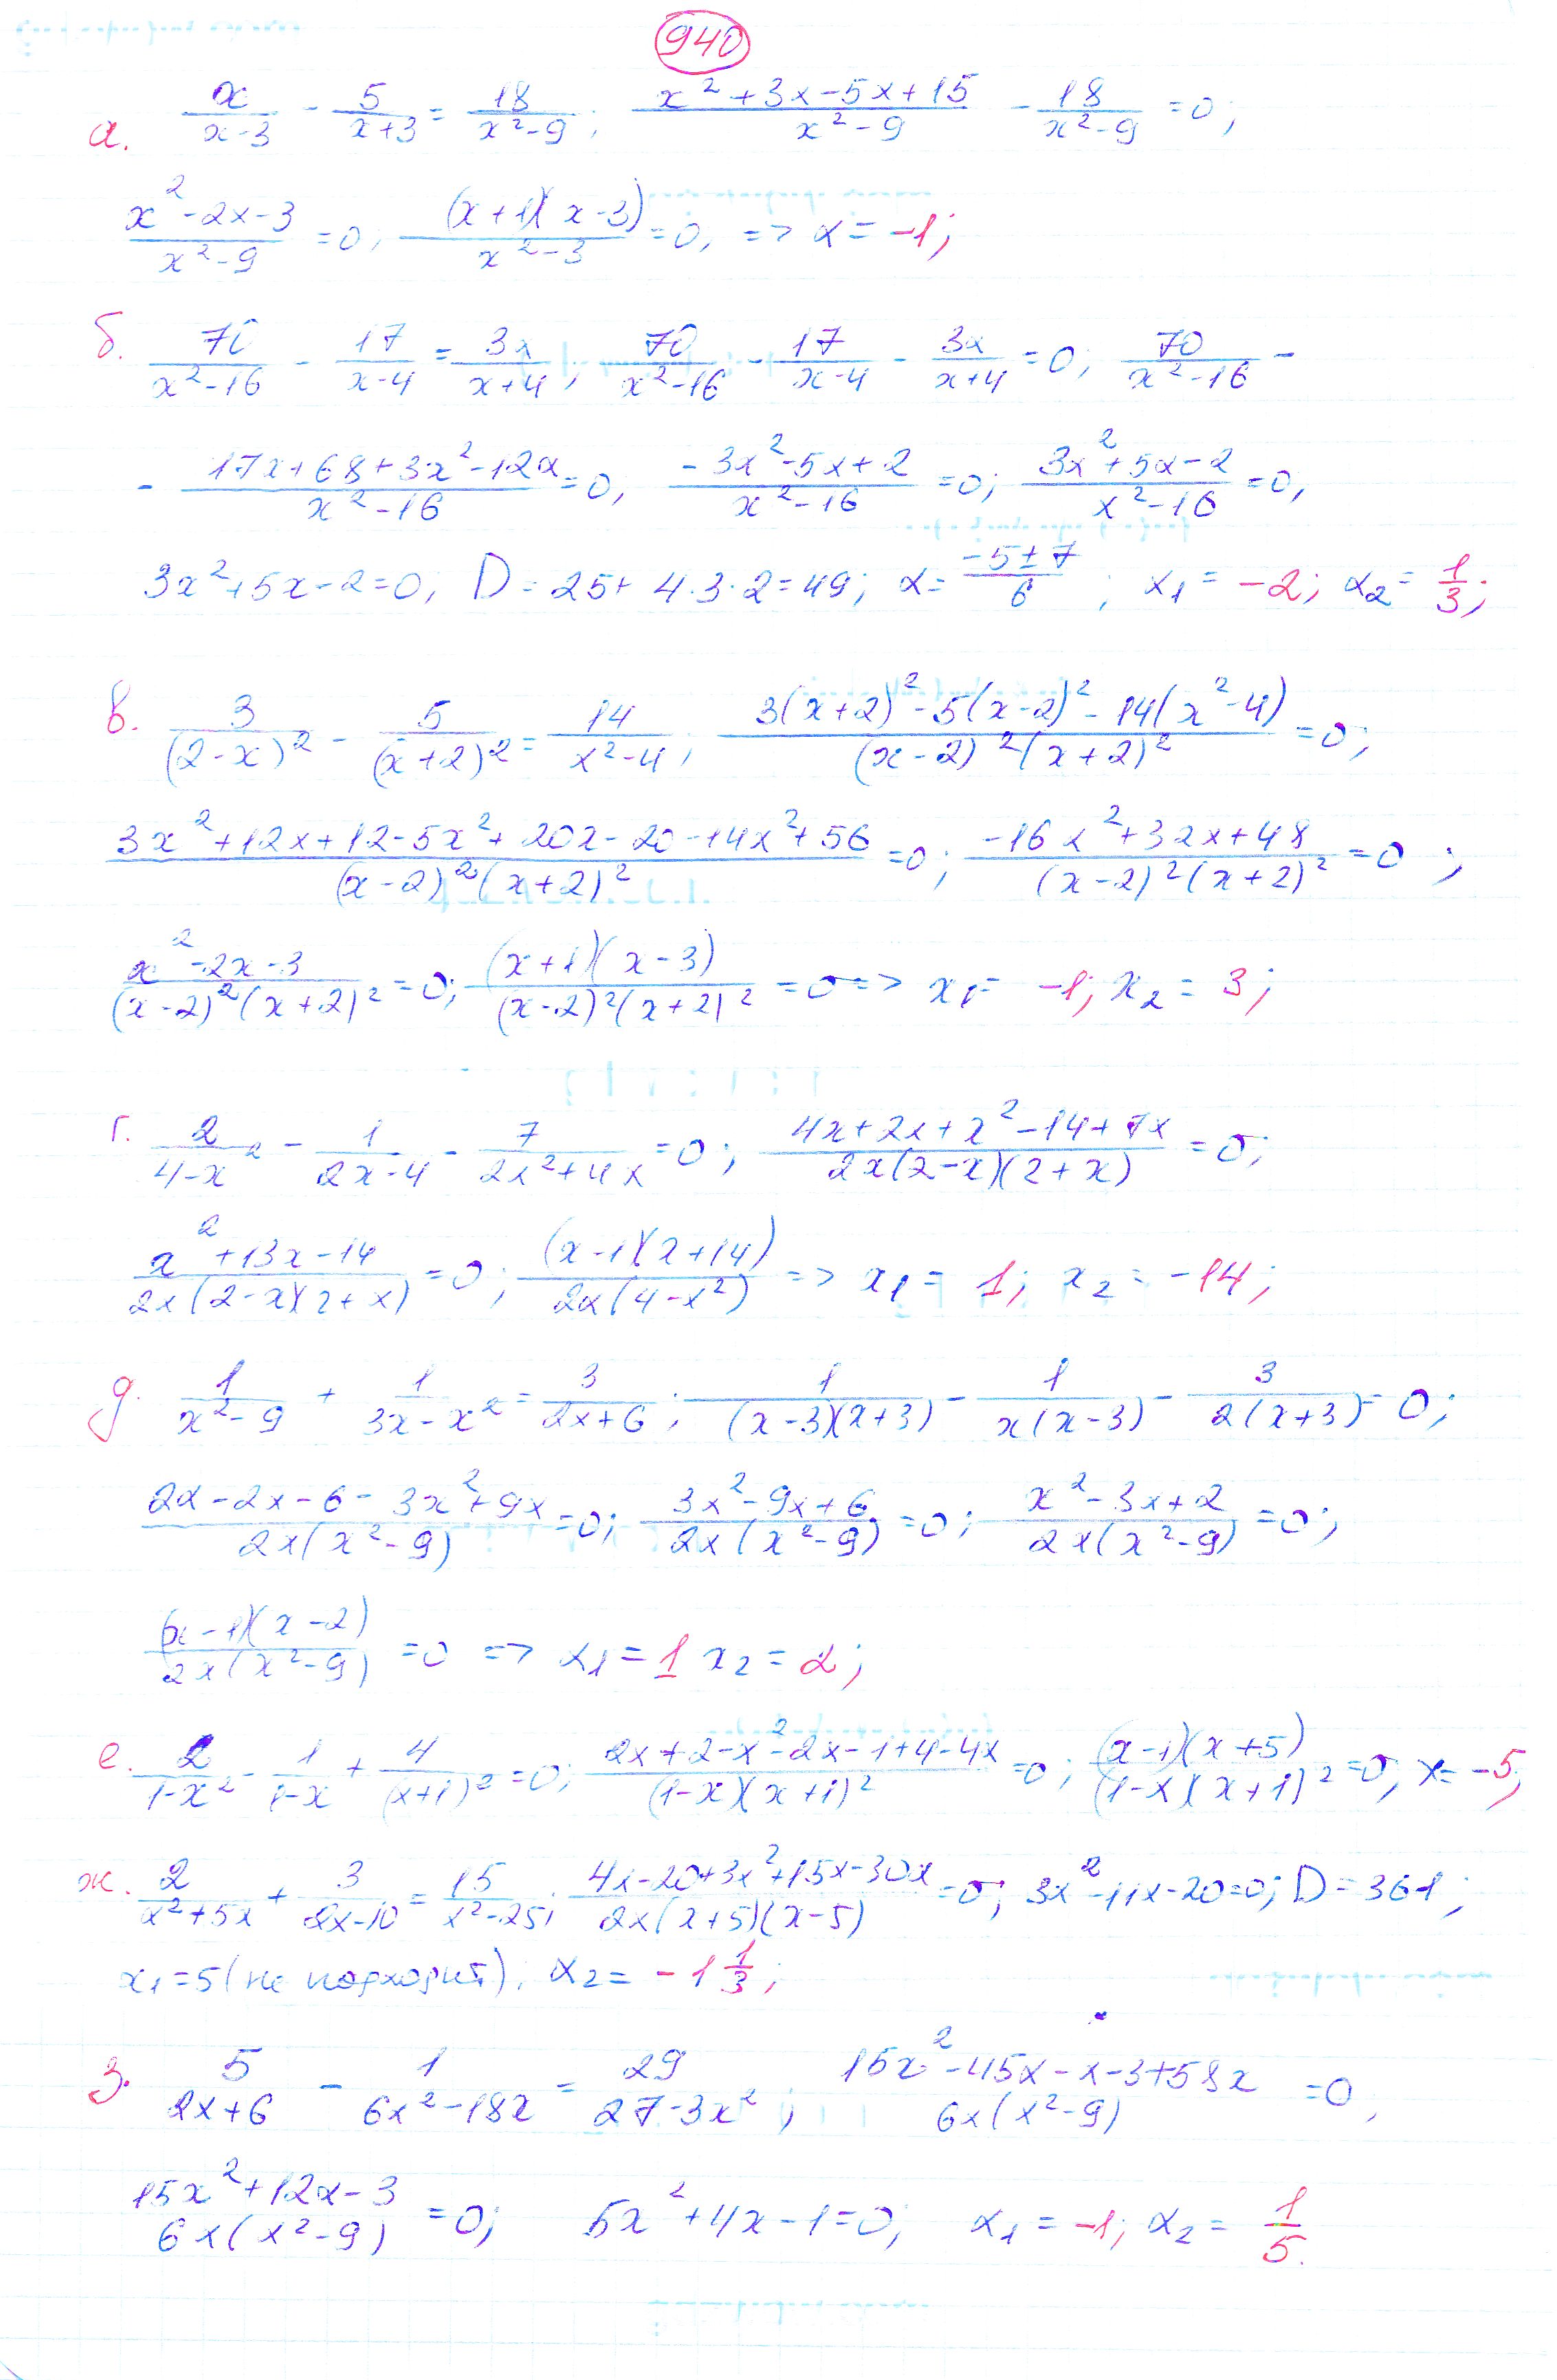 940
а. x/(x-3) - 5/(x+3) = 18/(x²-9); (x²+3x-5x+15)/(x²-9) - 18/(x²-9) = 0;
(x²-2x-3)/(x²-9) = 0; (x+1)(x-3)/(x²-3) = 0, => x = -1;
б. 70/(x²-16) - 17/(x-4) = 3x/(x+4); 70/(x²-16) - 17/(x-4) - 3x/(x+4) = 0; 70/(x²-16) -
- (17x+68+3x²-12x)/(x²-16) = 0, (-3x²-5x+2)/(x²-16) = 0; (3x²+5x-2)/(x²-16) = 0,
3x²+5x-2=0; D = 25+4·3·2=49; x = (-5±7)/6; x₁ = -2; x₂ = 1/3;
в. 3/(2-x)² - 5/(x+2)² = 14/(x²-4); (3(x+2)²-5(x-2)²-14(x²-4))/((x-2)²(x+2)²) = 0;
(3x²+12x+12-5x²+20x-20-14x²+56)/((x-2)²(x+2)²) = 0; (-16x²+32x+48)/((x-2)²(x+2)²) = 0;
(x²-2x-3)/((x-2)²(x+2)²) = 0; (x+1)(x-3)/((x-2)²(x+2)²) = 0 => x₁ = -1; x₂ = 3;
г. 2/(4-x²) - 1/(2x-4) - 7/(2x²+4x) = 0; (4x+2x+x²-14+7x)/(2x(2-x)(2+x)) = 0;
(x²+13x-14)/(2x(2-x)(2+x)) = 0; (x-1)(x+14)/(2x(4-x²)) => x₁ = 1; x₂ = -14;
д. 1/(x²-9) + 1/(3x-x²) = 3/(2x+6); 1/((x-3)(x+3)) - 1/(x(x-3)) - 3/(2(x+3)) = 0;
(2x-2x-6-3x²+9x)/(2x(x²-9)) = 0; (3x²-9x+6)/(2x(x²-9)) = 0; (x²-3x+2)/(2x(x²-9)) = 0;
(x-1)(x-2)/(2x(x²-9)) = 0 => x₁ = 1 x₂ = 2;
е. 2/(1-x²) - 1/(1-x) + 4/(x+1)² = 0; (2x+2-x²-2x-1+4-4x)/((1-x)(x+1)²) = 0; (x-1)(x+5)/((1-x)(x+1)²) = 0; x = -5;
ж. 2/(x²+5x) + 3/(2x-10) = 15/(x²-25); (4x-20+3x²+15x-30x)/(2x(x+5)(x-5)) = 0; 3x²-11x-20=0; D = 361;
x₁ = 5 (не подходит), x₂ = -1 1/3;
з. 5/(2x+6) - 1/(6x²-18x) = 29/(27-3x²); (15x²-45x-x-3+58x)/(6x(x²-9)) = 0,
(15x²+12x-3)/(6x(x²-9)) = 0; 5x²+4x-1=0; x₁ = -1; x₂ = 1/5.